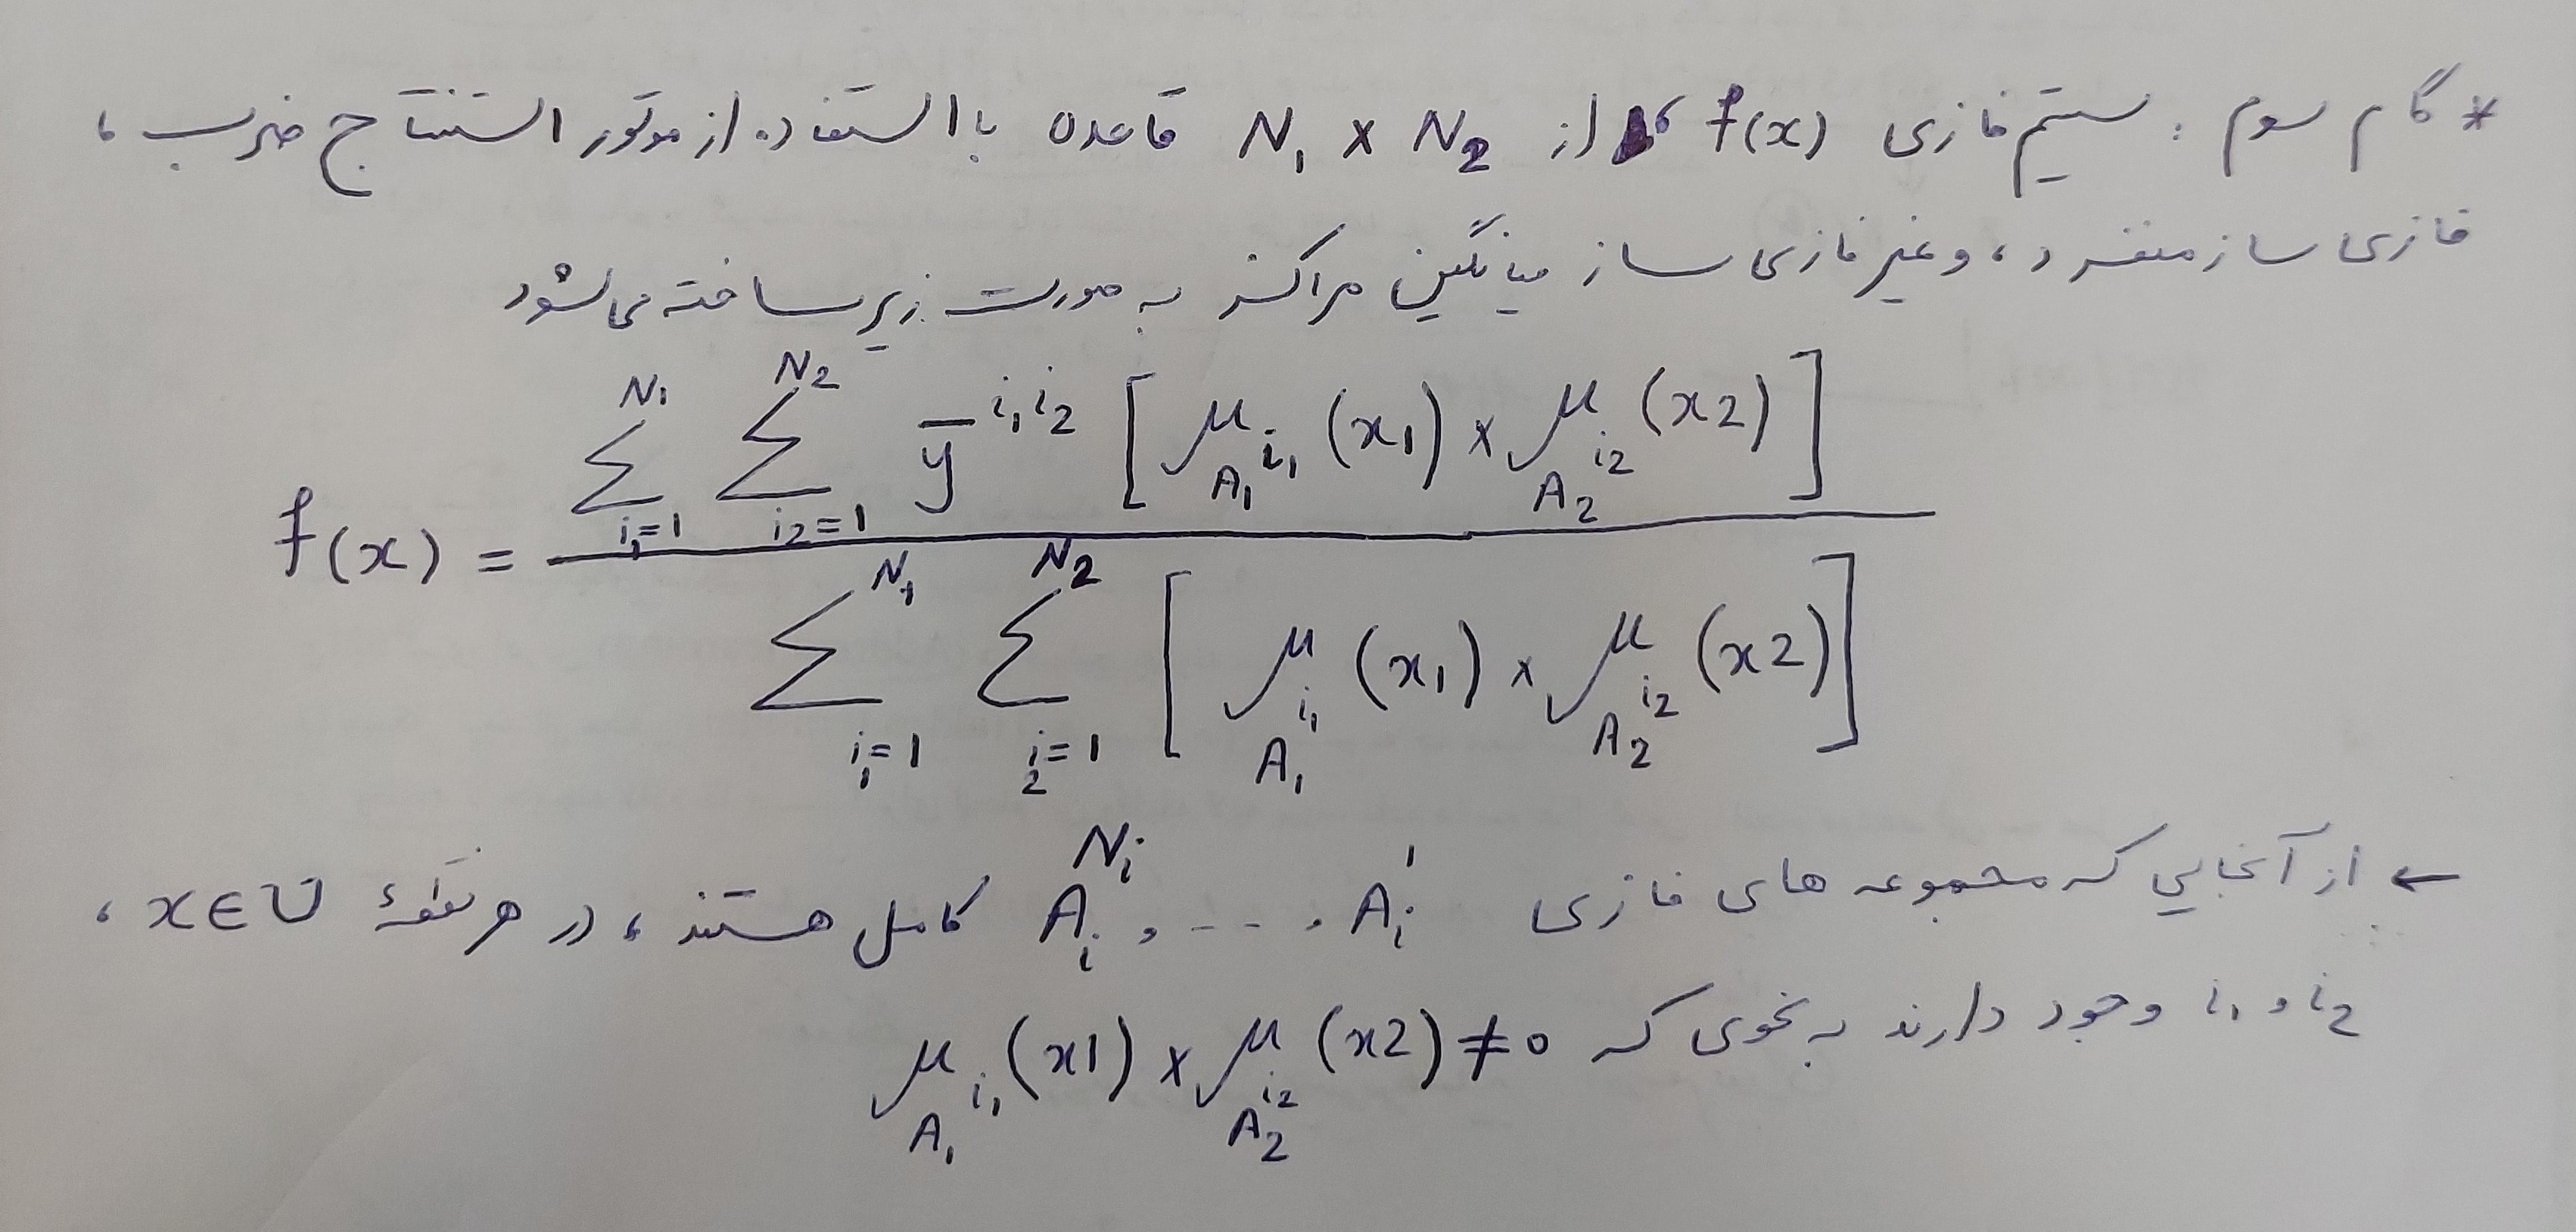 * گام سوم : سیستم فازی f(x) از N₁ × N₂ قاعده با استفاده از موتور استنتاج ضرب ،
فازی ساز منفرد ، و غیر فازی ساز میانگین مراکز به صورت زیر ساخته می شود
f(x) = \frac{\sum_{i_1=1}^{N_1} \sum_{i_2=1}^{N_2} \bar{y}^{i_1 i_2} [\mu_{A_1^{i_1}}(x_1) × \mu_{A_2^{i_2}}(x2)]}{\sum_{i_1=1}^{N_1} \sum_{i_2=1}^{N_2} [\mu_{A_1^{i_1}}(x_1) × \mu_{A_2^{i_2}}(x2)]}
← از آنجایی که مجموعه های فازی A_i^1 , ... , A_i^{N_i} کامل هستند ، در هر نقطهٔ x∈U ،
i₁ و i₂ وجود دارند به نحوی که \mu_{A_1^{i_1}}(x1) × \mu_{A_2^{i_2}}(x2) ≠ 0